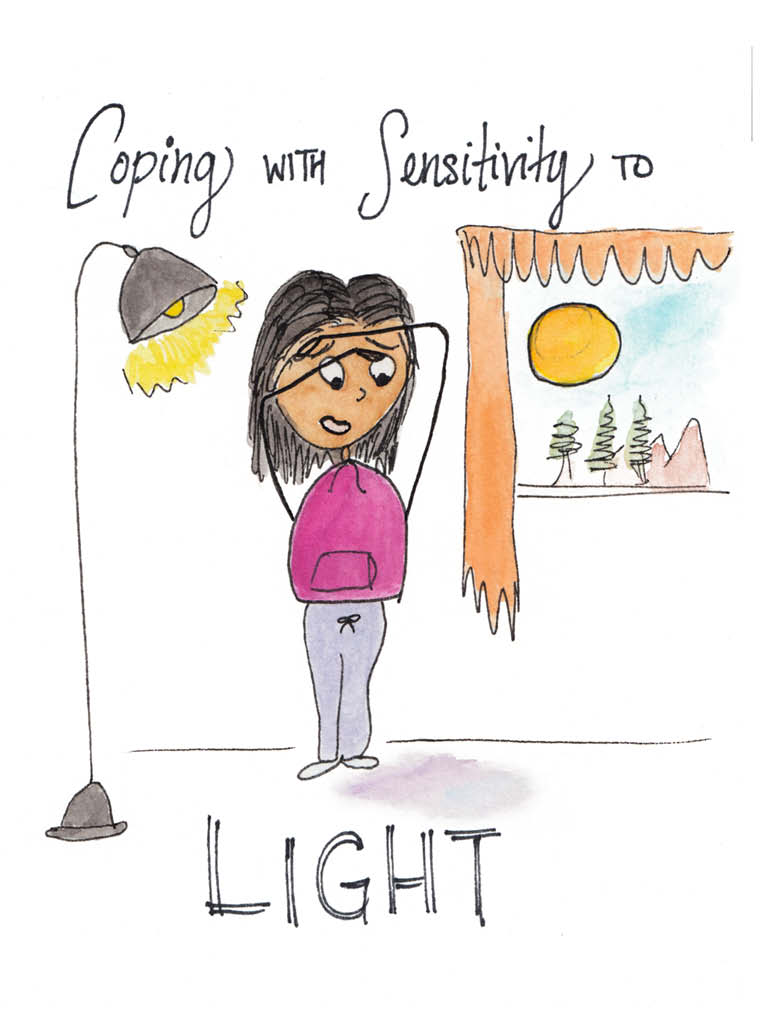 Coping WITH Sensitivity TO
LIGHT